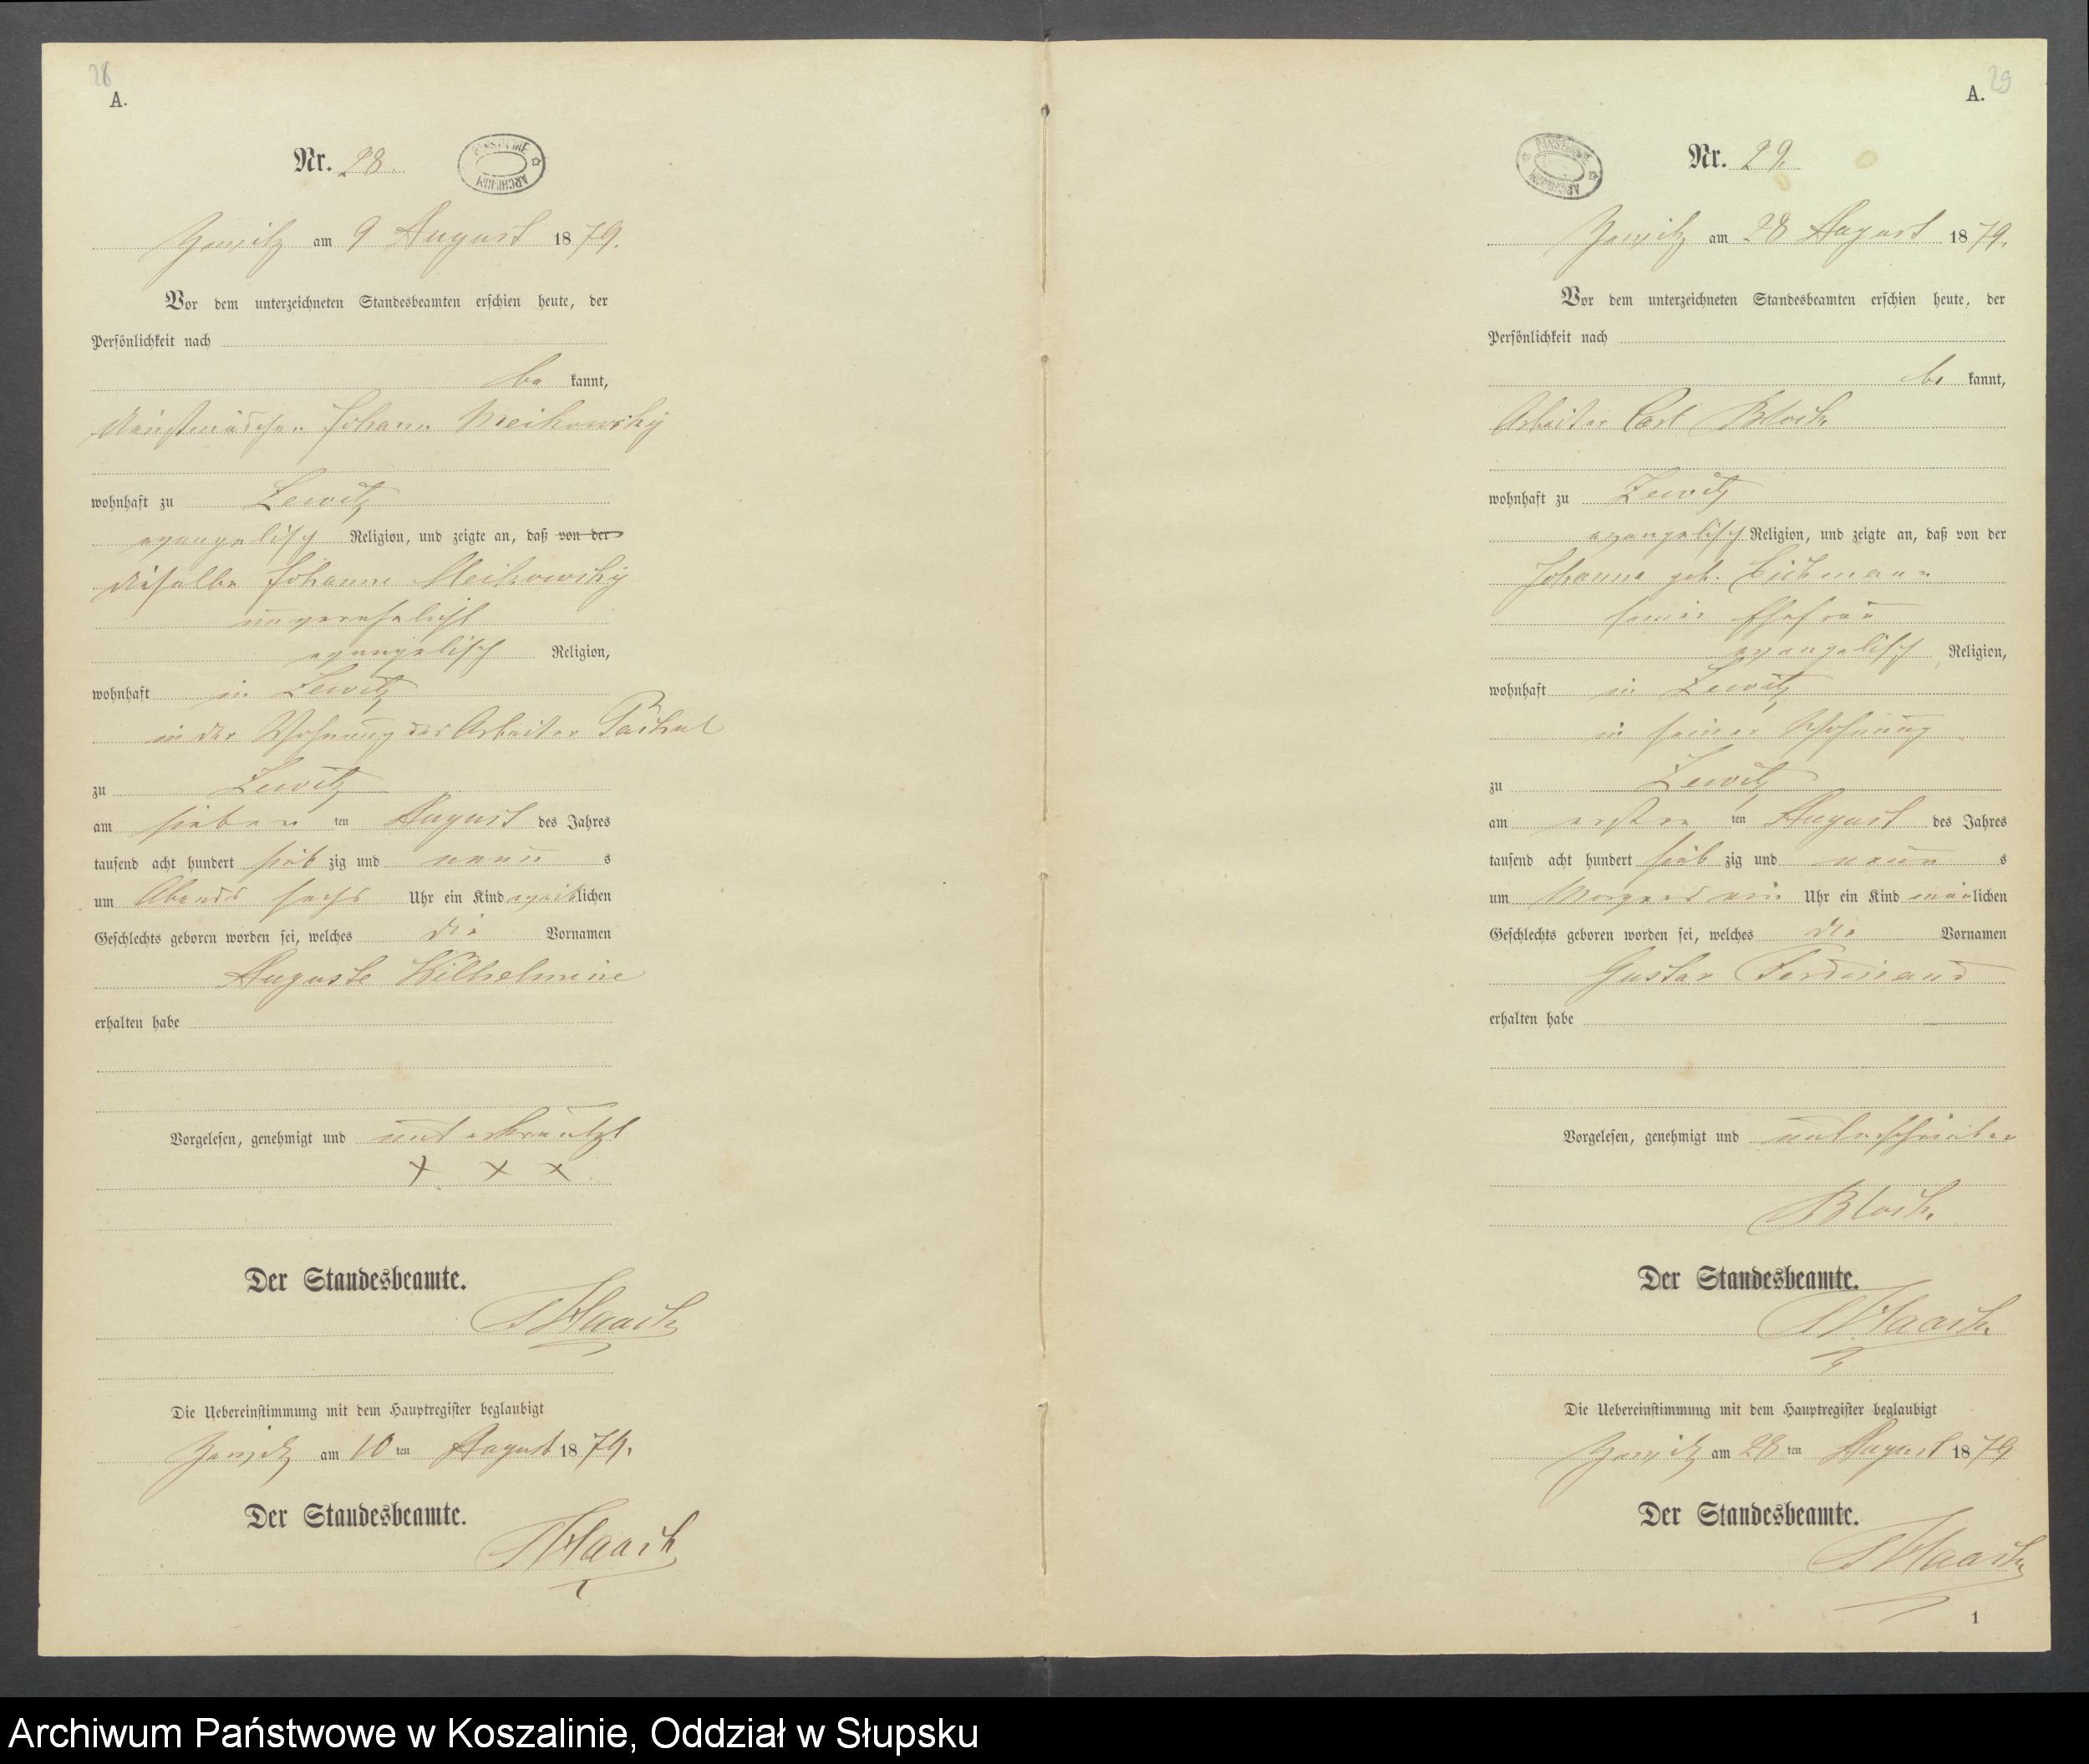 28
A.
Nr. 28.
PAŃSTWOWE ARCHIWUM
am 9 August 1879.
Vor dem unterzeichneten Standesbeamten erschien heute, der
Persönlichkeit nach
be kannt,
Johann Meikowsky
wohnhaft zu Zewitz
evangelisch Religion, und zeigte an, daß von der
dieselbe Johanne Meikowsky
unverehelicht
evangelisch Religion,
wohnhaft in Zewitz
in der Wohnung des Arbeiter
zu Zewitz
am sieben ten August des Jahres
tausend acht hundert sieb zig und neun s
um Abends sechs Uhr ein Kind weiblichen
Geschlechts geboren worden sei, welches die Vornamen
Auguste Wilhelmine
erhalten habe
Vorgelesen, genehmigt und unterkreutzt
+ x x
Der Standesbeamte.
Haack
Die Uebereinstimmung mit dem Hauptregister beglaubigt
am 10 ten August 1879.
Der Standesbeamte.
Haack
29
A.
Nr. 29.
PAŃSTWOWE ARCHIWUM
am 28 August 1879.
Vor dem unterzeichneten Standesbeamten erschien heute, der
Persönlichkeit nach
be kannt,
Arbeiter Carl Block
wohnhaft zu Zewitz
evangelisch Religion, und zeigte an, daß von der
Johanne geb. Dickmann
seiner Ehefrau
evangelisch Religion,
wohnhaft in Zewitz
in seiner Wohnung
zu Zewitz
am ersten ten August des Jahres
tausend acht hundert sieb zig und neun s
um Morgens ein Uhr ein Kind männlichen
Geschlechts geboren worden sei, welches die Vornamen
Gustav Ferdinand
erhalten habe
Vorgelesen, genehmigt und unterschrieben
Block.
Der Standesbeamte.
Haack
Die Uebereinstimmung mit dem Hauptregister beglaubigt
am 28 ten August 1879
Der Standesbeamte.
Haack
1
Archiwum Państwowe w Koszalinie, Oddział w Słupsku